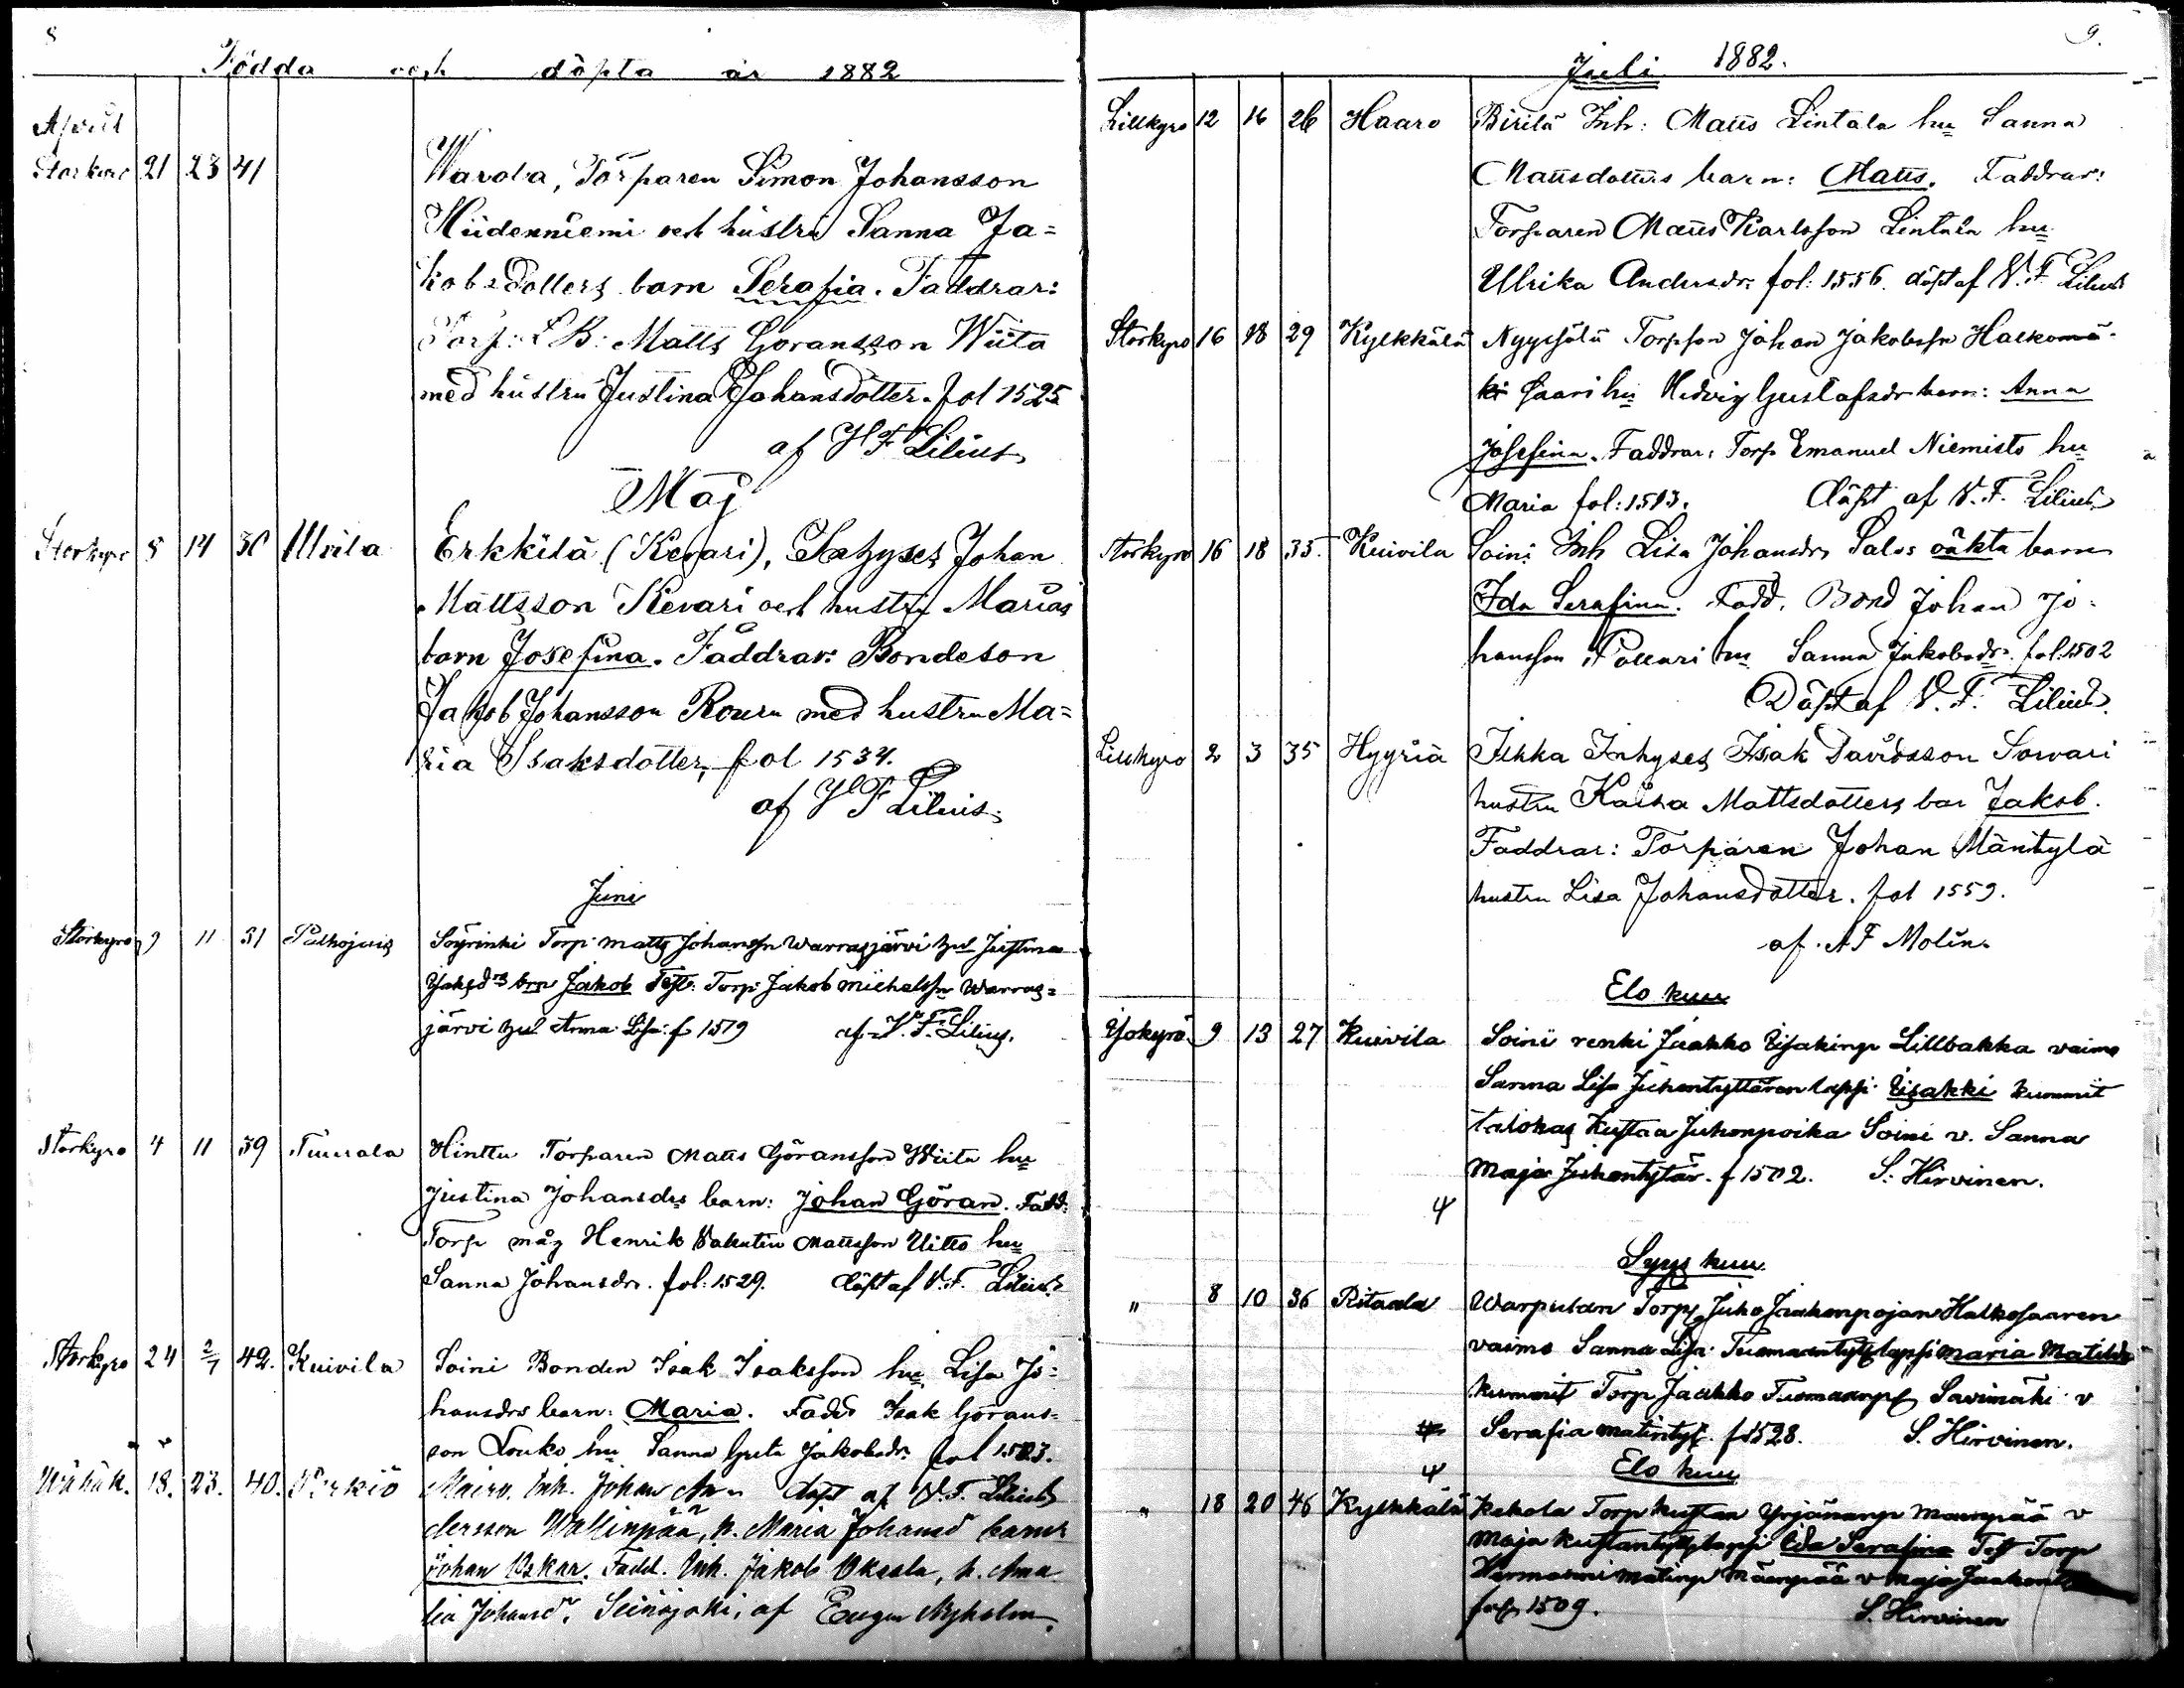 8
Födda och döpta år 1882
April
Storkyro 21 23 41 Warola, Torparen Simon Johansson
Hiidenniemi och hustru Sanna Ja=
kobsdotters barn Serafia. Faddrar:
Torp: Matts Göransson Wiita
med hustru Justina Johansdotter. fol 1525
af V F Lilius
Maj
Storkyro 8 14 30 Ulvila Erkkilä (Kevari), Johan
Mattsson Kevari och hustru Marias
barn Josefina. Faddrar: Bondeson
Jakob Johansson med hustru Ma=
ria Isaksdotter, fol 1534.
af V F Lilius.
Juni
Storkyro 9 11 31 Söyrinki Torp. Matts Johanssn Warrasjärvi Justina
brn Jakob Test: Torp. Jakob Michelssn Warras=
järvi Anna Lisa f 1519 af V. F. Lilius.
Storkyro 4 11 39 Tuurala Hinttu Torparen Matts Göransson Wiita hu
Justina Johansdrs barn: Johan Göran. Fadd:
Torp måg Henrik Valentin Mattsson Uitto hu
Sanna Johansdr. fol: 1529. döpt af V. F. Lilius
Storkyro 24 2/7 42. Kuivila Soini Bonden Isak Isaksson hu Lisa Jo=
hansdrs barn: Maria. Fadd Isak Görans=
son Louko hu Sanna Greta Jakobsdr. fol 1503.
döpt af V. F. Lilius
18. 23. 40. Inh. Johan An
dersson Wallinpää, h. Maria Johansd barn
Johan Oskar. Fadd. Inh. Jakob Oksala, h. Ama
lia Johansdr. Seinäjoki, af Eugen Nyholm.
9.
Juli 1882.
Lillkyro 12 16 26 Haaro Birilä Inh: Matts Lintala hu Sanna
Mattsdotters barn: Matts. Faddrar:
Torparen Matts Karlsson Lintala hu
Ulrika Andersdr: fol: 1556. döpt af V. F. Lilius
Storkyro 16 18 29 Kylkkälä Nyyssölä Torpson Johan Jakobsson Halkomä
ki Saari hu Hedvig Gustafsdr barn: Anna
Josefina. Faddrar: Torp Emanuel Niemistö hu
Maria fol: 1513. Döpt af V. F. Lilius
Storkyro 16 18 35. Kuivila Soini Inh Lisa Johansdrs Salos oäkta barn
Ida Serafina. Fadd. Bond Johan Jo=
hansson Pollari hu Sanna Jakobsdr. fol. 1502
Döpt af V. F. Lilius.
Lillkyro 2 3 35 Hyyriä Ilkka Inhyses Isak Davidsson Sorvari
hustru Kaisa Mattsdotters bar Jakob.
Faddrar: Torparen Johan Mäntylä
hustru Lisa Johansdotter. fol 1559.
af. A F Molin.
Elo kuu
Isokyrö 9 13 27 Kuivila Soini renki Jaakko Lillbakka vaimo
Sanna Lisa Juhontyttären lapsi Iisakki kummit
talokas Kustaa Juhonpoika Soini v. Sanna
Maja Juhontytär. f 1502. S. Hirvinen.
Syys kuu
" 8 10 36 Ritaala Warpulan Torp. Juho Jaakonpojan Halkosaaren
vaimo Sanna Lisa lapsi Maria Matilda
kummit Torp Jaakko Savimäki v
Serafia f 1528. S. Hirvinen.
Elo kuu
" 18 20 46 Kylkkälä Kekola Torp Kustaa v
Maja lapsi Ida Serafina Test Torp
Hermanni Mäenpää v Maja
fol 1509. S. Hirvinen